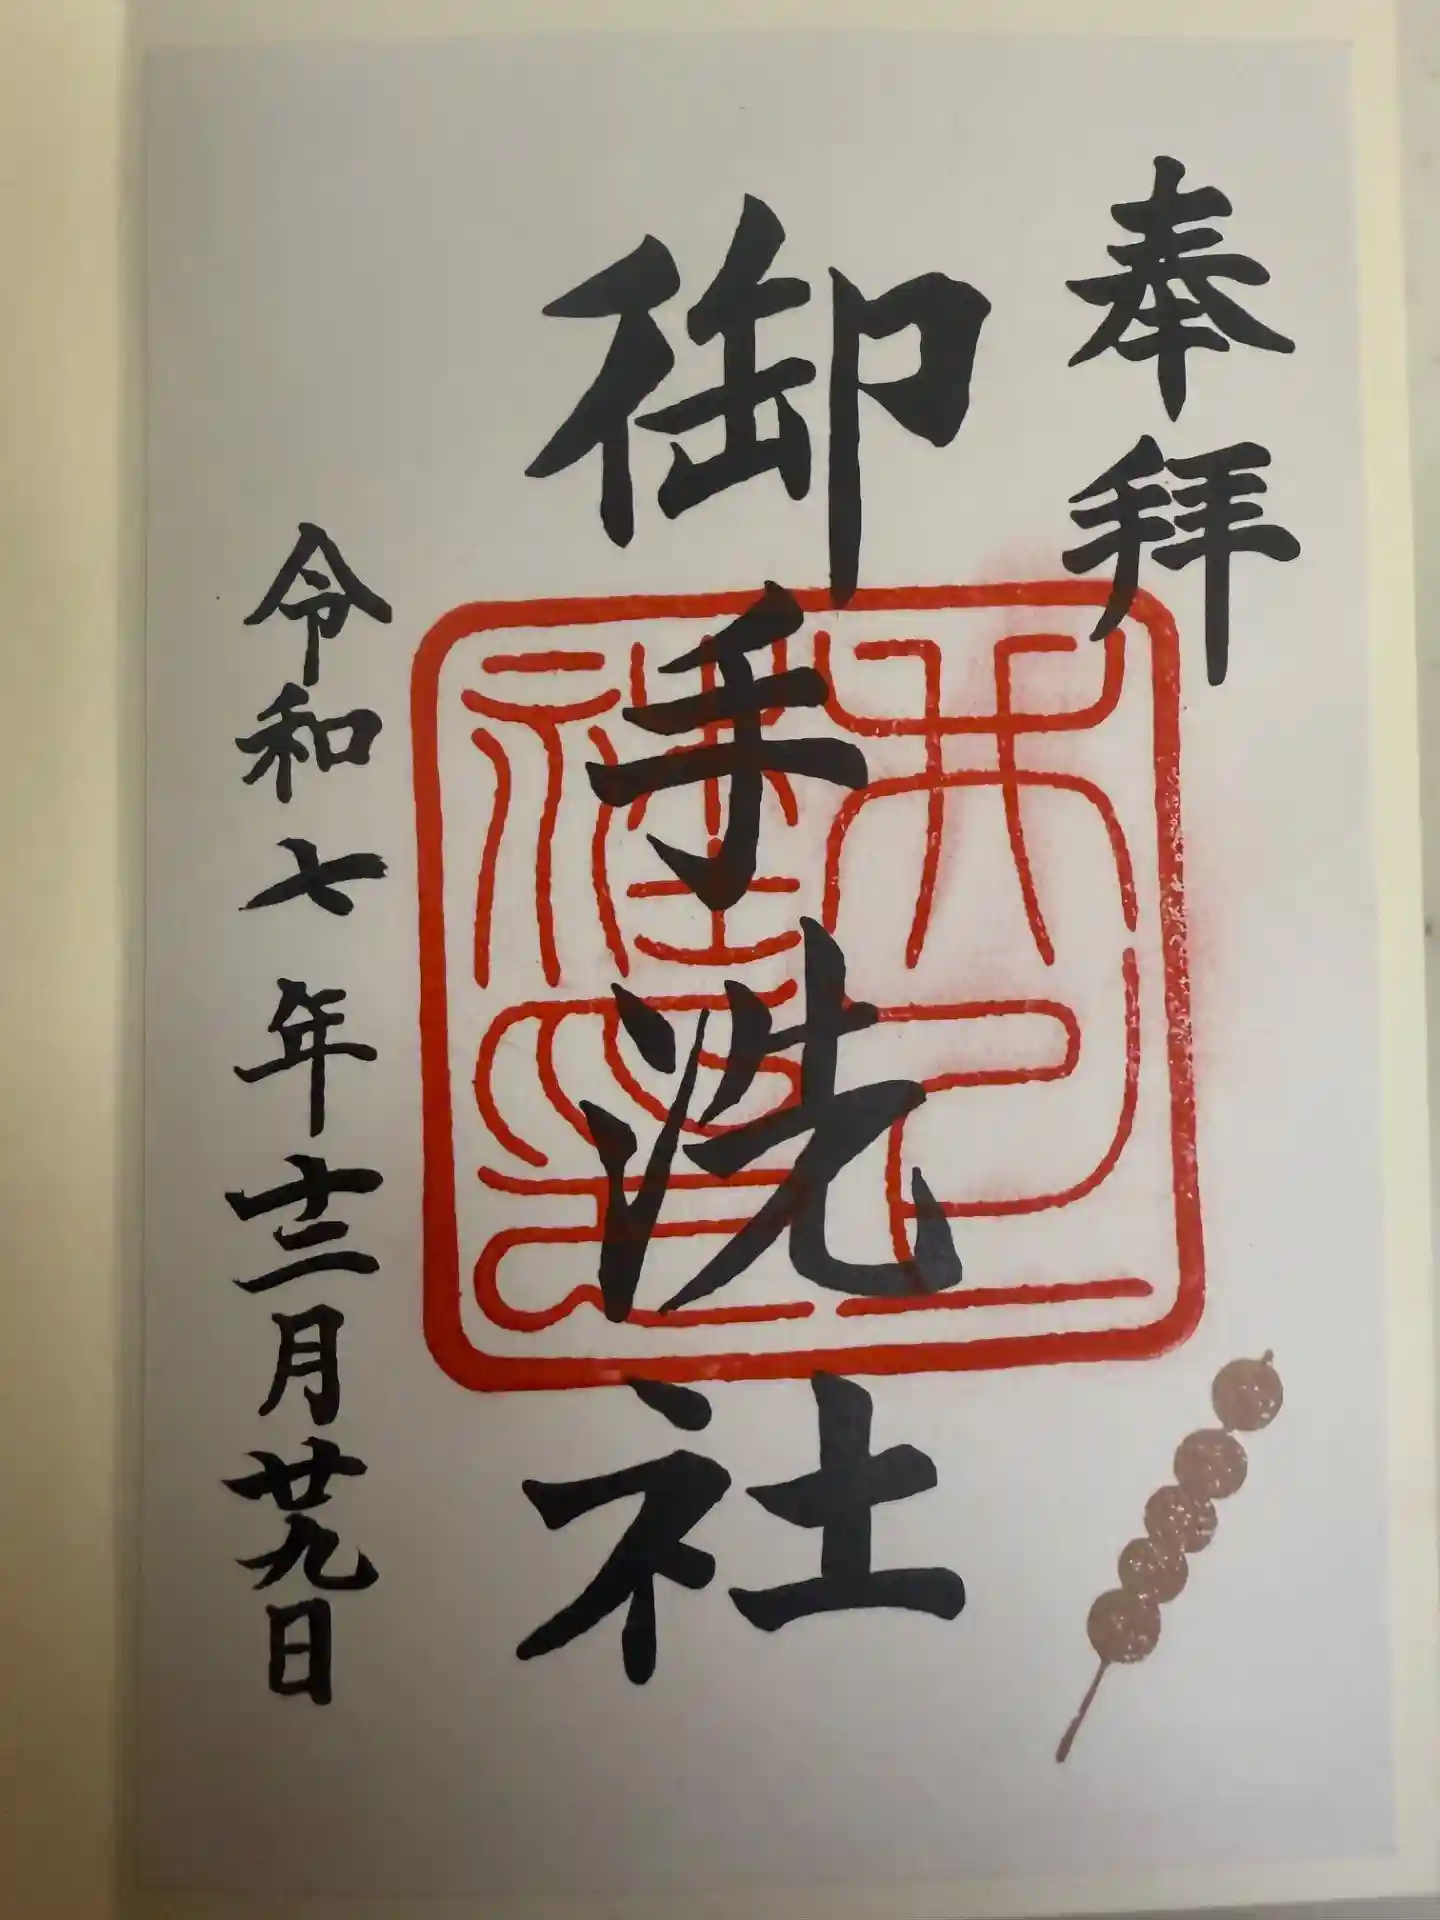 奉拝
御手洗社
令和七年十二月廿九日